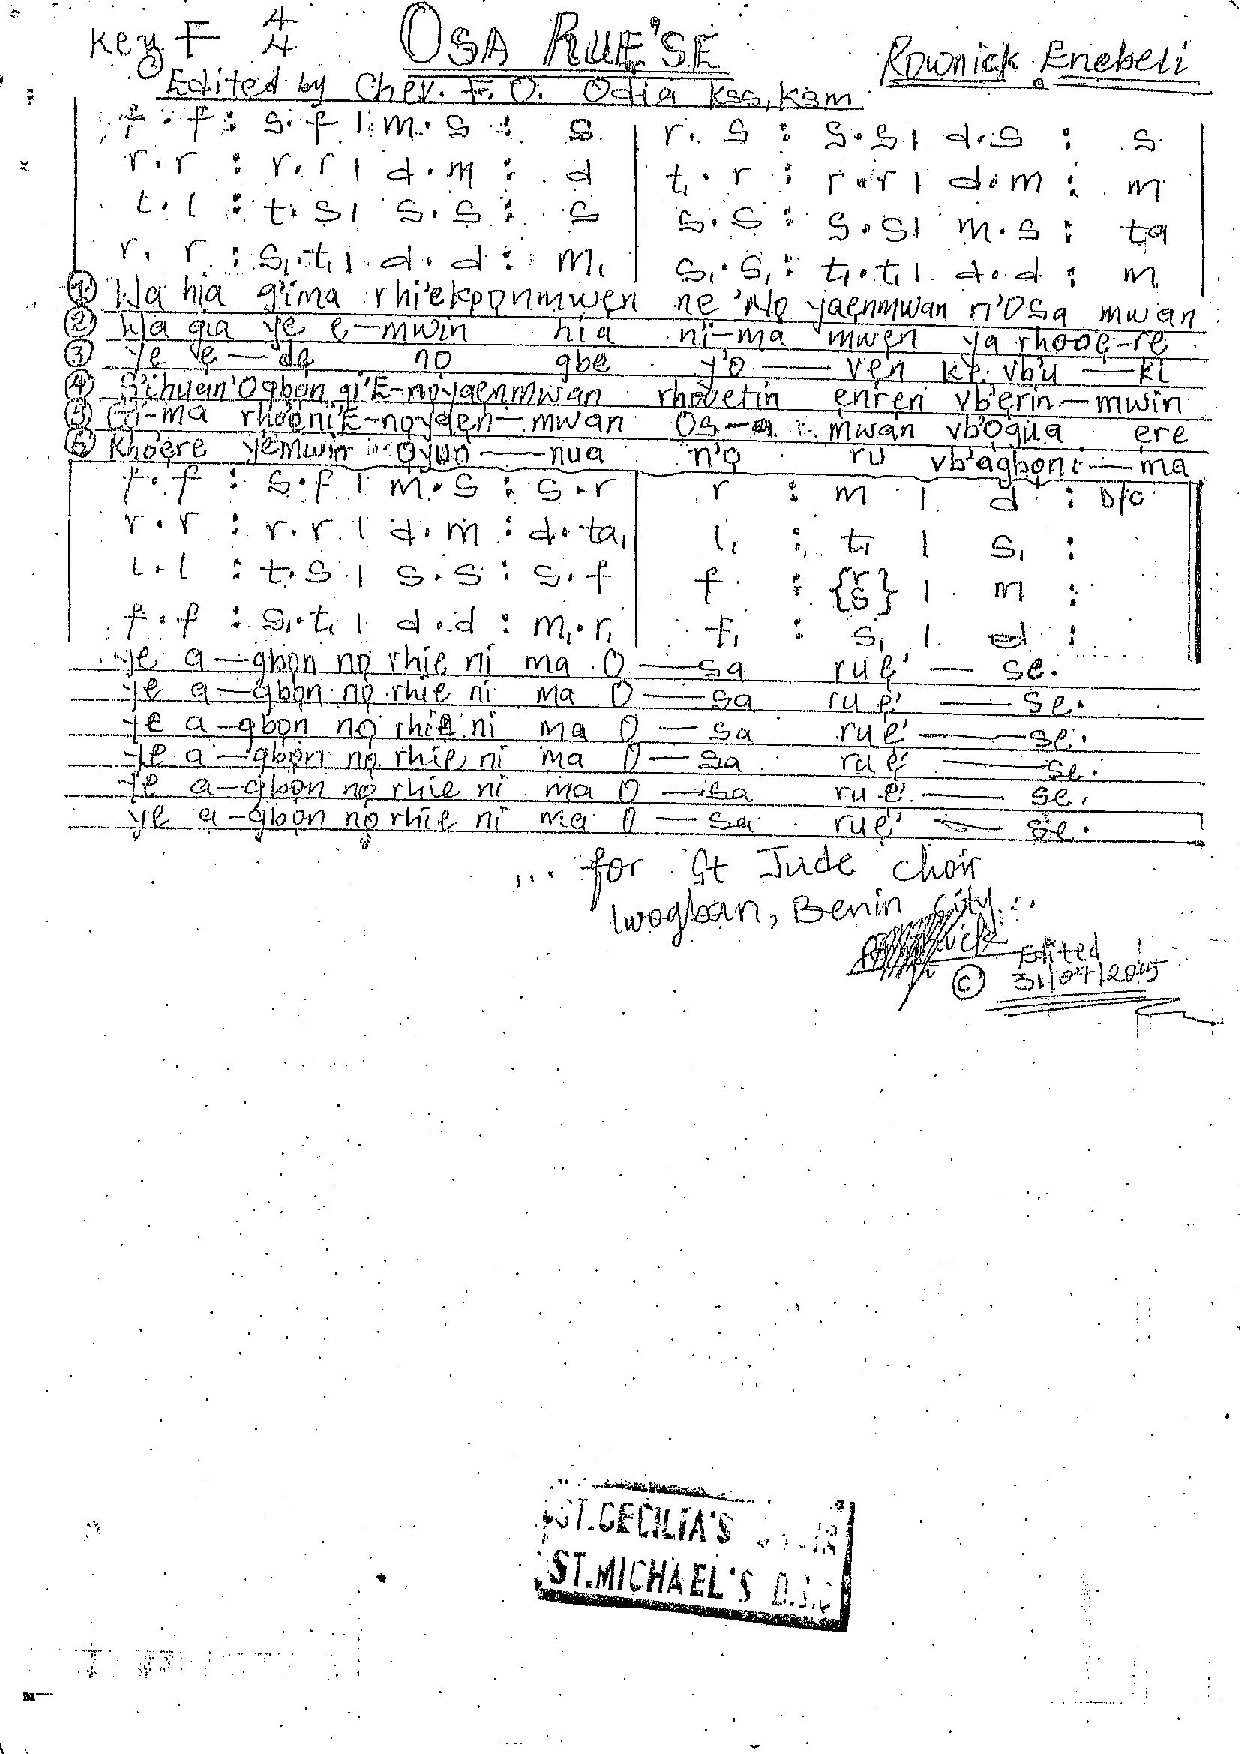 Key F 4/4 OSA RUE'SE Rownick Enebeli
Edited by Chev. F. O. Odia KSS, KSM
f . f : s . f | m . s : s | r . s : s . s | d . s : s
r . r : r . r | d . m : d | t₁ . r : r . r | d . m : m
l . l : t . s | s . s : s | s . s : s . s | m . s : ta
r . r : s₁ . t₁ | d . d : m₁ | s₁ . s₁ : t₁ . t₁ | d . d : m
① Wa hia g'ima rhi'ekponmwen ne 'No yaenmwan n'Osa mwan
② Wa gia ye e–mwin hia ni–ma mwen ya rhooe–re
③ Ye e–de no gbe y'o — ven ke vb'u — ki
④ Si'huan'Ogbon gi'E–noyaenmwan rhovetin enren vb'erin–mwin
⑤ Gi–ma rhooni'E–noyaen–mwan Os–a mwan vb'ogua ere
⑥ Kho'ere yemwin oyuo — nua n'o ru vb'agboni — ma
f . f : s . f | m . s : s . r | r : m | d : D/C
r . r : r . r | d . m : d . ta₁ | l₁ : t₁ | s₁ :
l . l : t . s | s . s : s . f | f : {r s} | m :
f . f : s₁ . t₁ | d . d : m₁ . r₁ | f₁ : s₁ | d :
ye a–gbon no rhie ni ma O — sa rue' — se.
ye a–gbon no rhie ni ma O — sa rue' — se.
ye a–gbon no rhie ni ma O — sa rue' — se.
ye a–gbon no rhie ni ma O — sa rue' — se.
ye a–gbon no rhie ni ma O — sa rue' — se.
ye a–gbon no rhie ni ma O — sa rue' — se.
... for St Jude Choir
Iwogban, Benin City...
© Edited
31/07/2015
ST. CECILIA'S
ST. MICHAEL'S